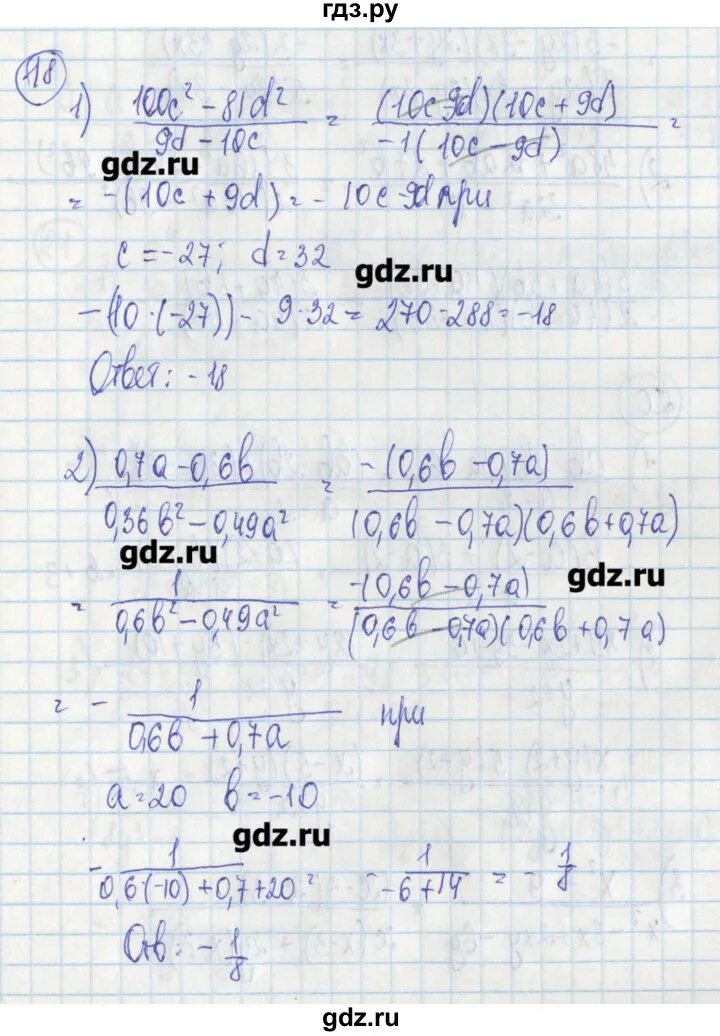 гдз.ру
118
1) (100c² - 81d²)/(9d - 10c) = ((10c-9d)(10c + 9d))/(-1(10c - 9d)) =
gdz.ru
= -(10c + 9d) = - 10c-9d при
c = -27; d = 32
gdz.ru
-(10·(-27)) - 9·32 = 270-288 = -18
Ответ: -18
2) (0,7a - 0,6b)/(0,36b² - 0,49a²) = (-(0,6b - 0,7a))/((0,6b - 0,7a)(0,6b+0,7a))
gdz.ru
gdz.ru
= 1/(0,6b² - 0,49a²) = (-(0,6b - 0,7a))/((0,6b - 0,7a)(0,6b + 0,7a))
= - 1/(0,6b + 0,7a) при
a = 20 b = -10
gdz.ru
- 1/(0,6(-10) + 0,7+20) = - 1/(-6+14) = - 1/8
Отв: - 1/8
gdz.ru